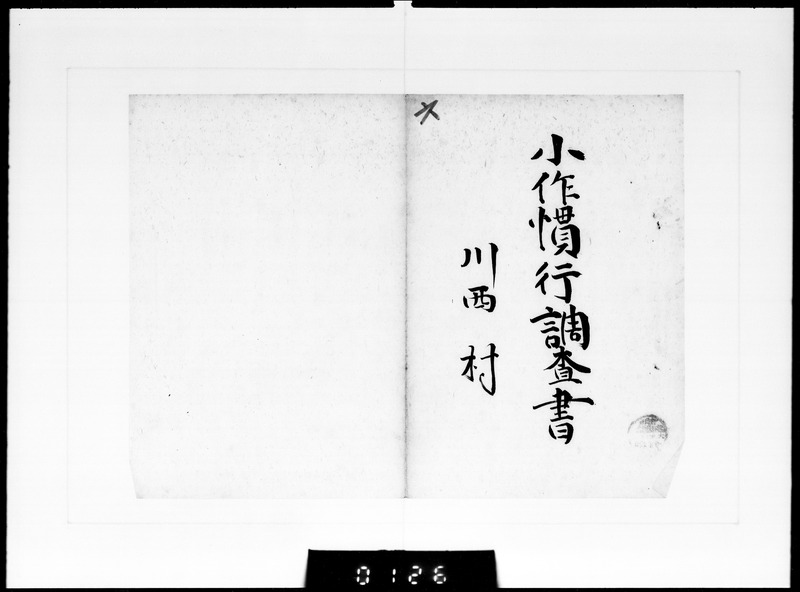 小作慣行調査書
川西村
0126